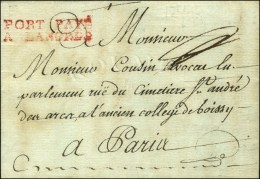 PORT PAYÉ
A LANGRES
Monsieur
Monsieur Cousin avocat au
parlement rue du Cimetiere St. andré
des arcs a l'ancien college de boissy
a Paris